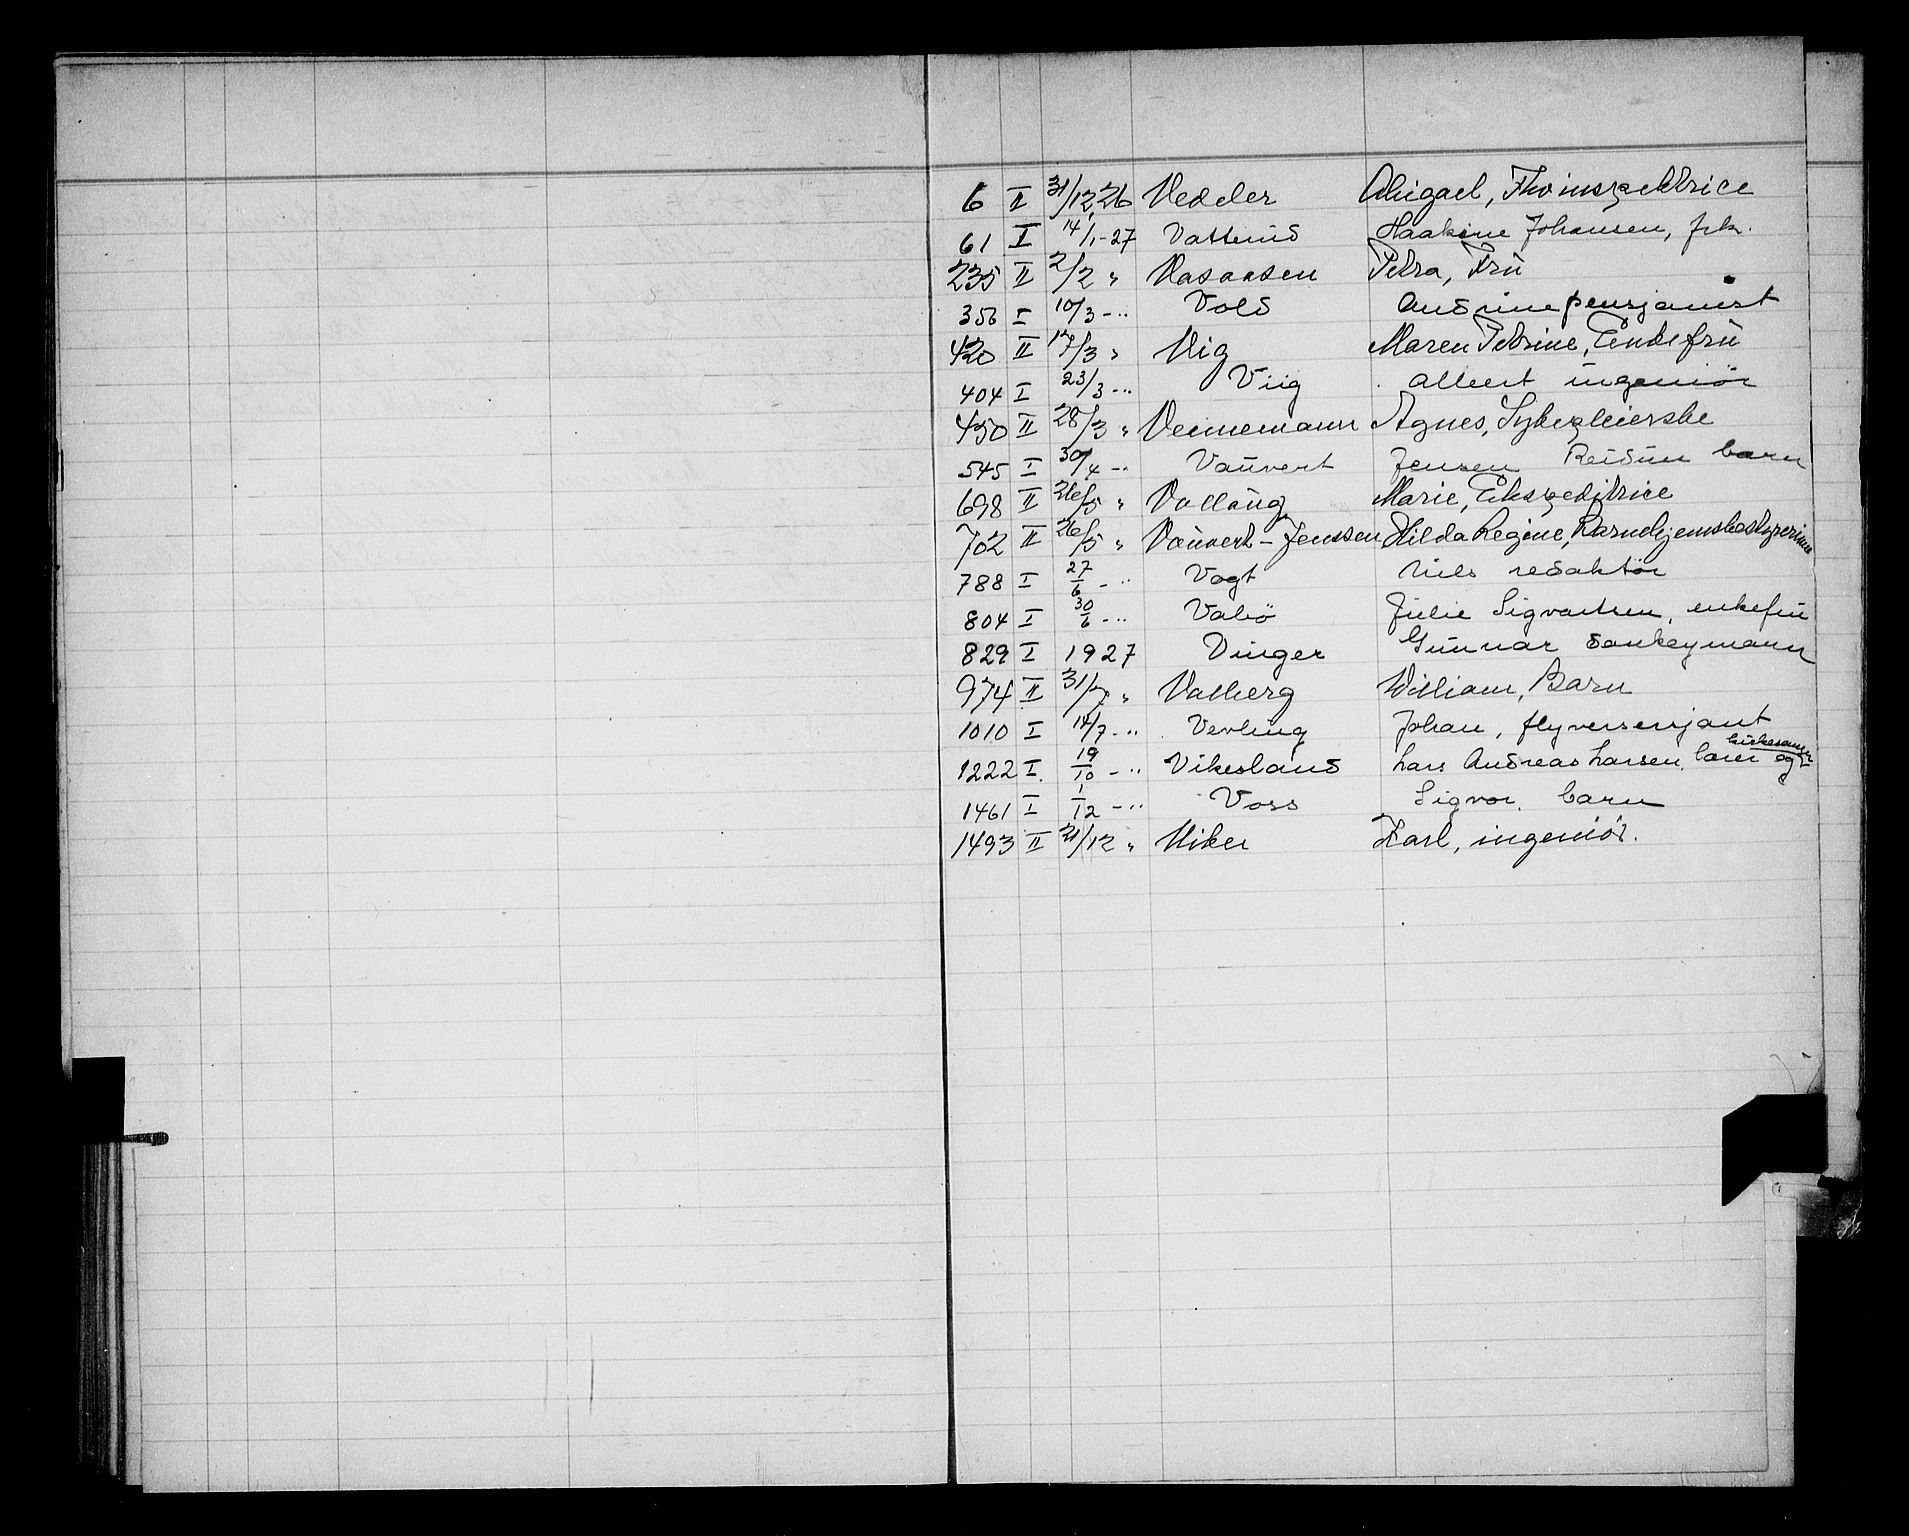 6 II 31/12 26 Vedeler Abigael, Fhv inspektrice
61 I 14/1-27 Vatterud Haakine Johansen, frk.
235 II 2/2 " Vasaasen Petra, Fru
356 I 10/3 - " Vold Andrine pensjonist
420 II 17/3 " Vig Maren Petrine, Enkefru
404 I 23/3 - " Viig Albert ingeniør
450 II 28/3 " Vennemann Agnes, Sykepleierske
545 I 30/4 - " Vauvert Jensen Reidun barn
698 II 26/5 " Vollaug Marie, Ekspeditrice
702 II 26/5 " Vauvert-Jenssen Hilda Regine, Barnehjemsbestyrerinne
788 I 27/6 - " Vogt Nils redaktør
804 I 30/6 - " Valsø Julie Sigvartsen, enkefru
829 I 1927 Vinger Gunnar Donkeymann
974 II 31/7 " Valberg William, Barn
1010 I 14/7 - " Vevling Johan, flyversersjant
1222 I. 19/10 - " Vikesland Lars Andreas Larsen, lærer og kirkesanger
1461 I 1/12 - " Voss Sigvor, barn
1493 II 31/12 " Viker Karl, ingeniør.